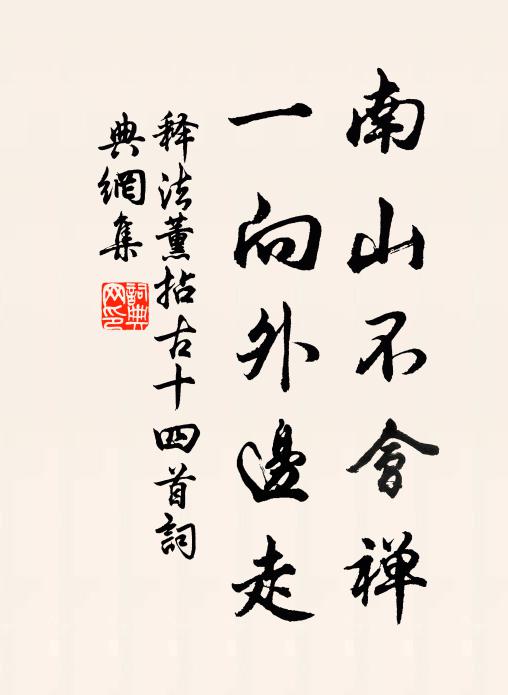 南山不會禅
一向外邊走
释法薰拈古十四首詞
典網集
詞典网印